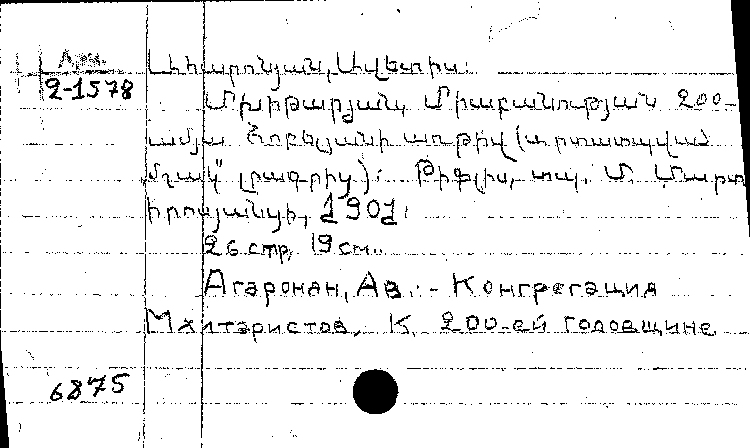 Արм.
2-1578
Ահարոնյան, Ավետիս:
Մխիթարյան Միաբանության 200-
ամյա հոբելյանի առթիվ (արտատպված
„Մշակ" լրագրից): Թիֆլիս, տպ. Մ. Մարտ
իրոսյանցի, 1901:
26 стр, 19 см.
Агаронян, Ав. - Конгрегация
Мхитаристов, К 200-ей годовщине
6875